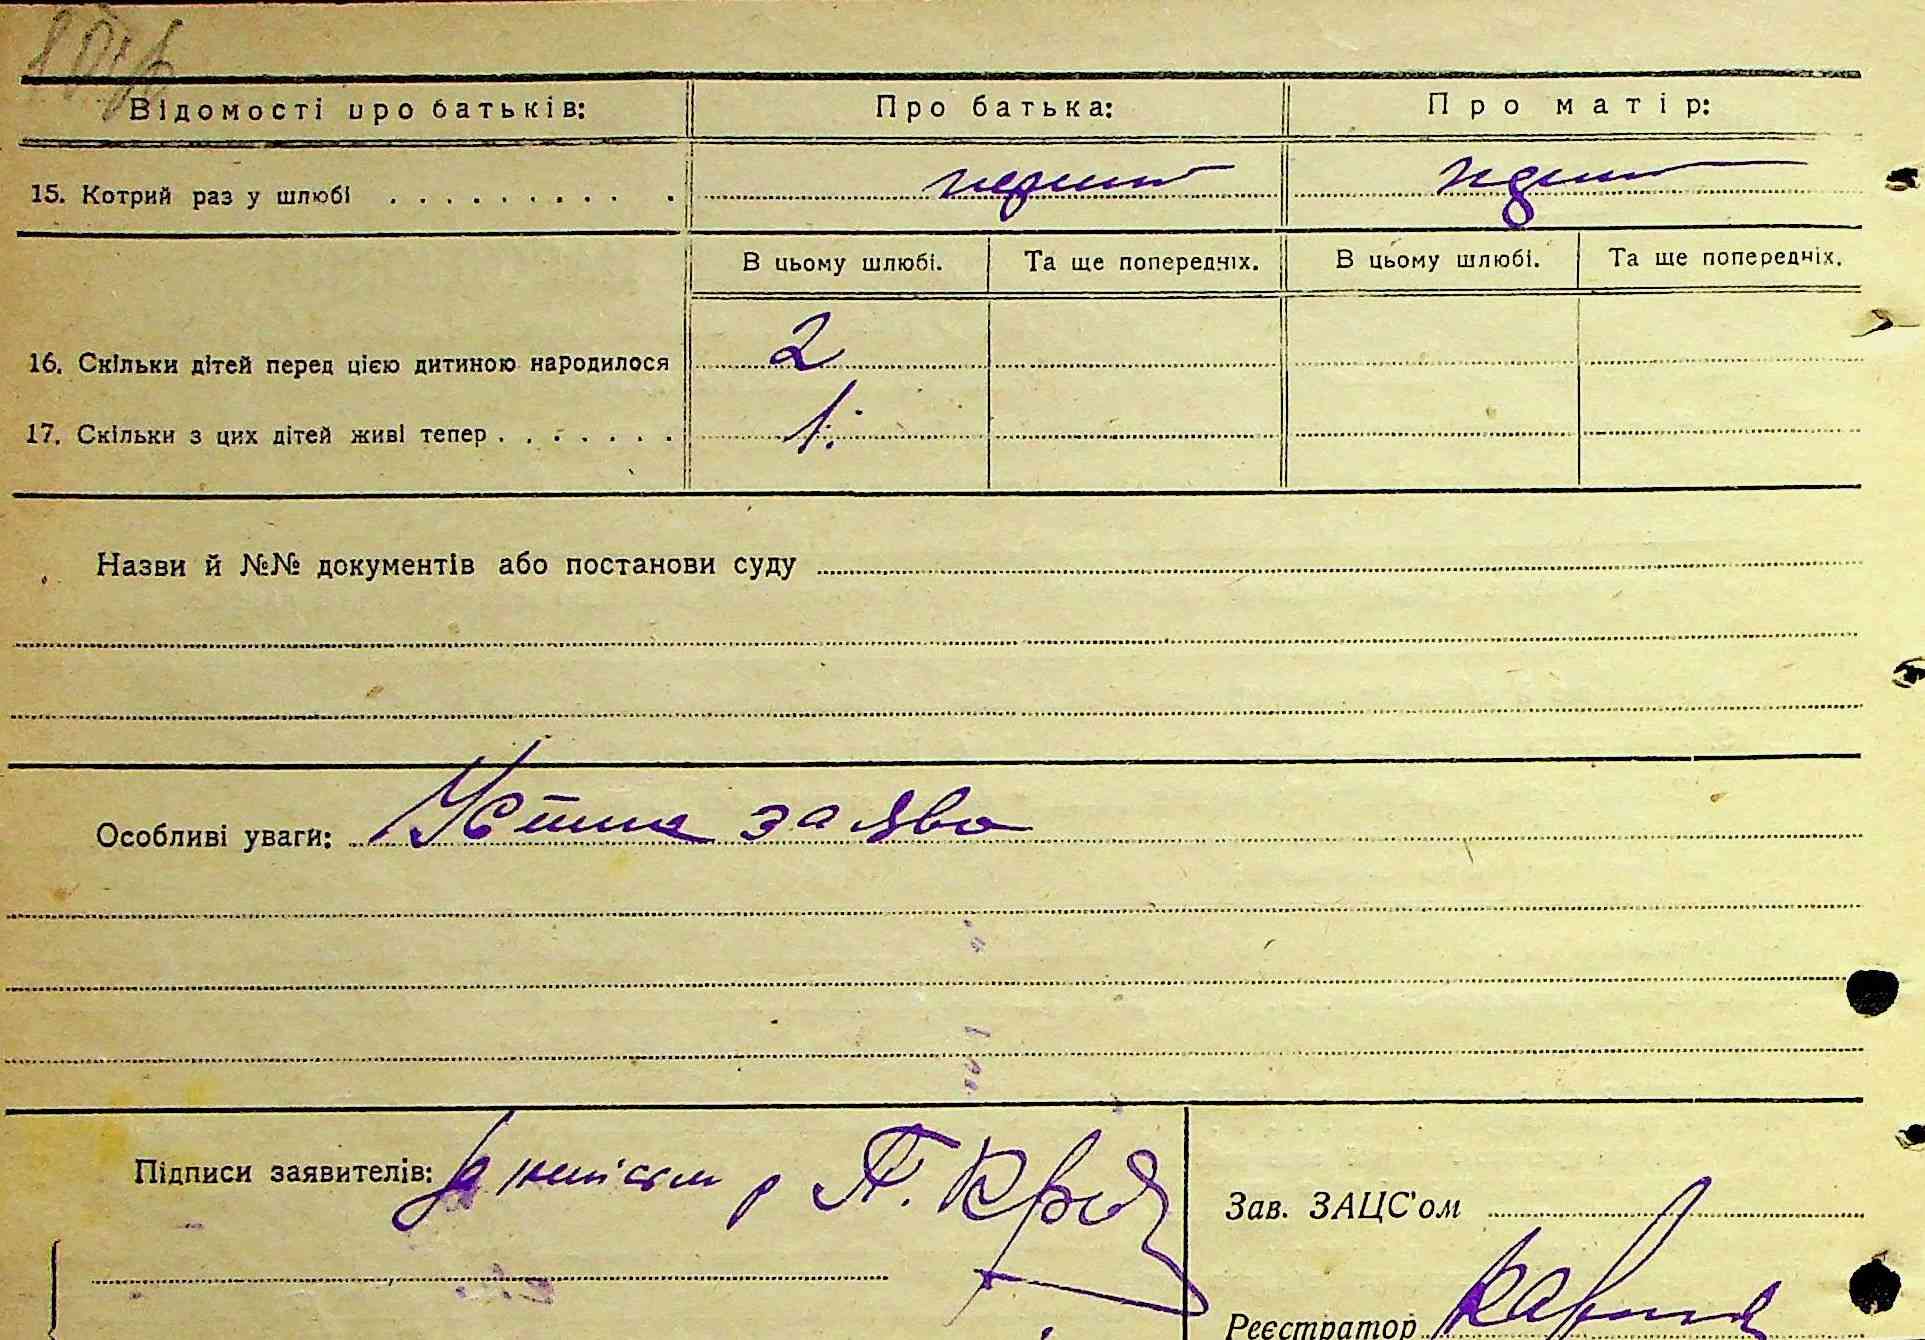 Відомості про батьків: Про батька: Про матір:
15. Котрий раз у шлюбі . . . . . . . . . . перший перший
В цьому шлюбі. Та ще попередніх. В цьому шлюбі. Та ще попередніх.
16. Скільки дітей перед цією дитиною народилося 2
17. Скільки з цих дітей живі тепер . . . . . . . 1
Назви й №№ документів або постанови суду
Особливі уваги: Устна заява
Підписи заявителів:
Зав. ЗАЦС'ом
Реєстратор